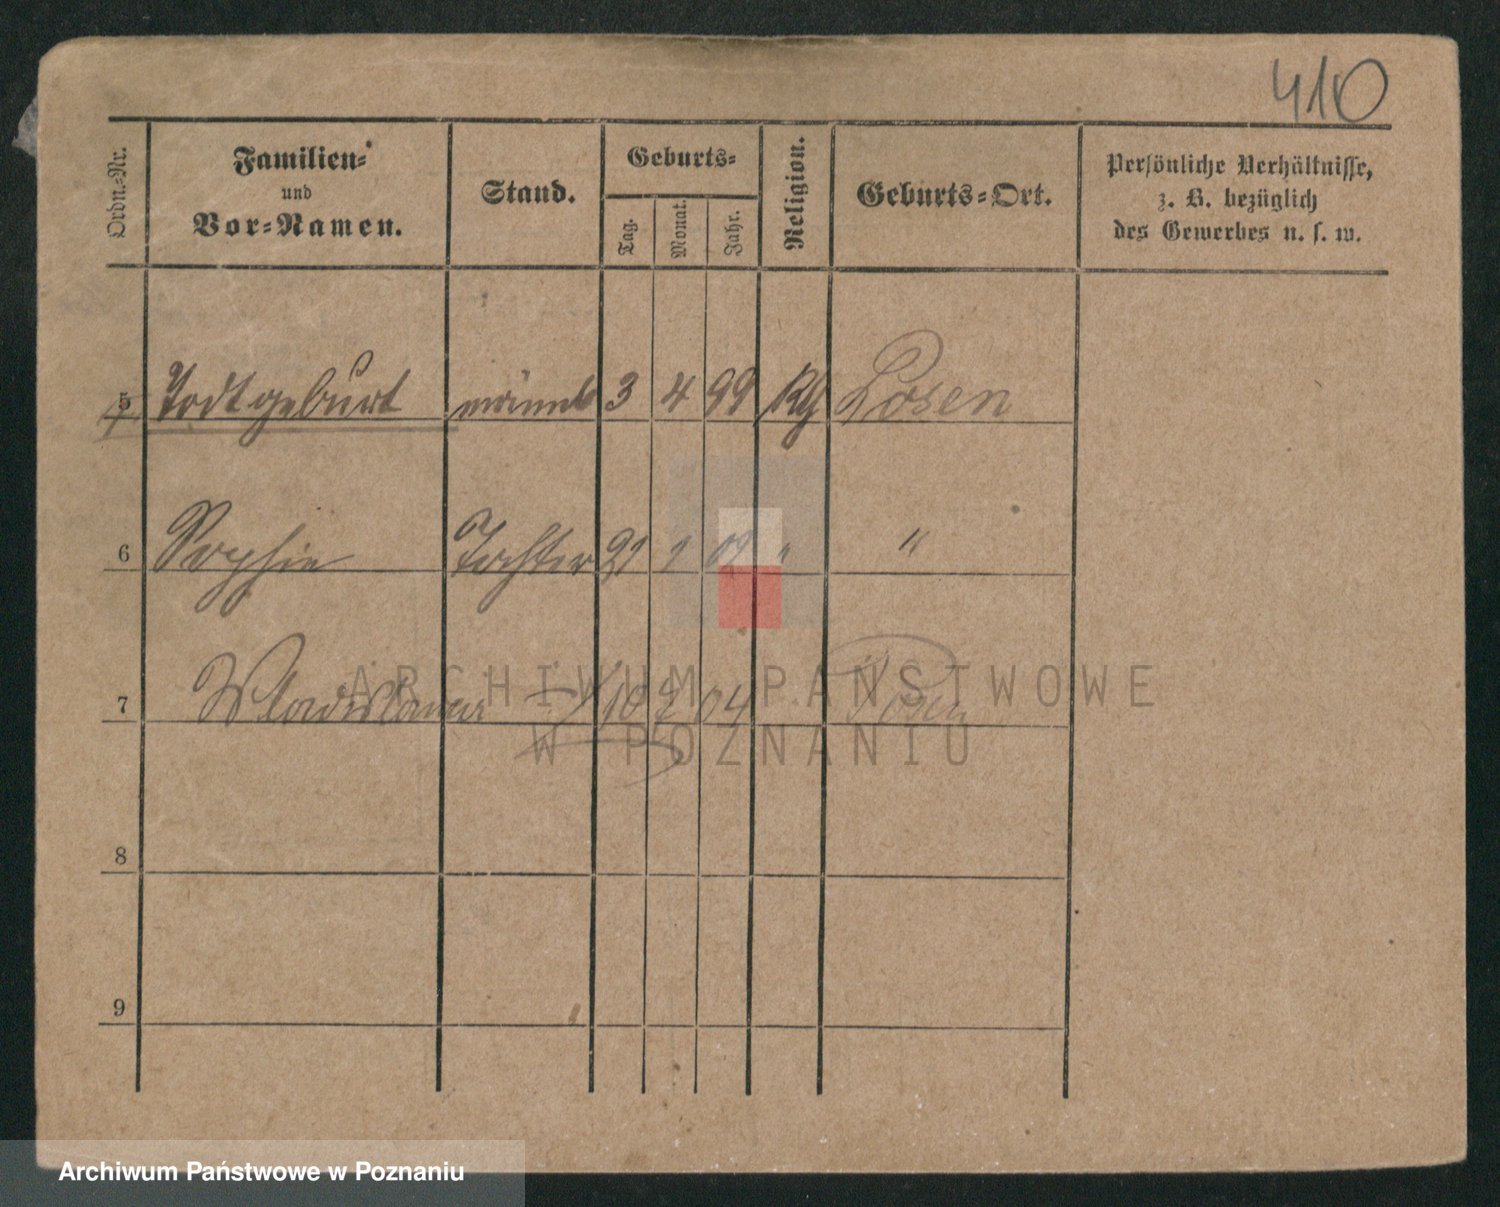 410
Ordn.-Nr.
Familien-
und
Vor-Namen.
Stand.
Geburts-
Tag.
Monat.
Jahr.
Religion.
Geburts-Ort.
Persönliche Verhältnisse,
z. B. bezüglich
des Gewerbes u. s. w.
5 Todtgeburt männl 3 4 99 Posen
6 Sophie Tochter 21 1 " "
7 Wladislawa 10 04 Posen
8
9
ARCHIWUM PAŃSTWOWE
W POZNANIU
Archiwum Państwowe w Poznaniu